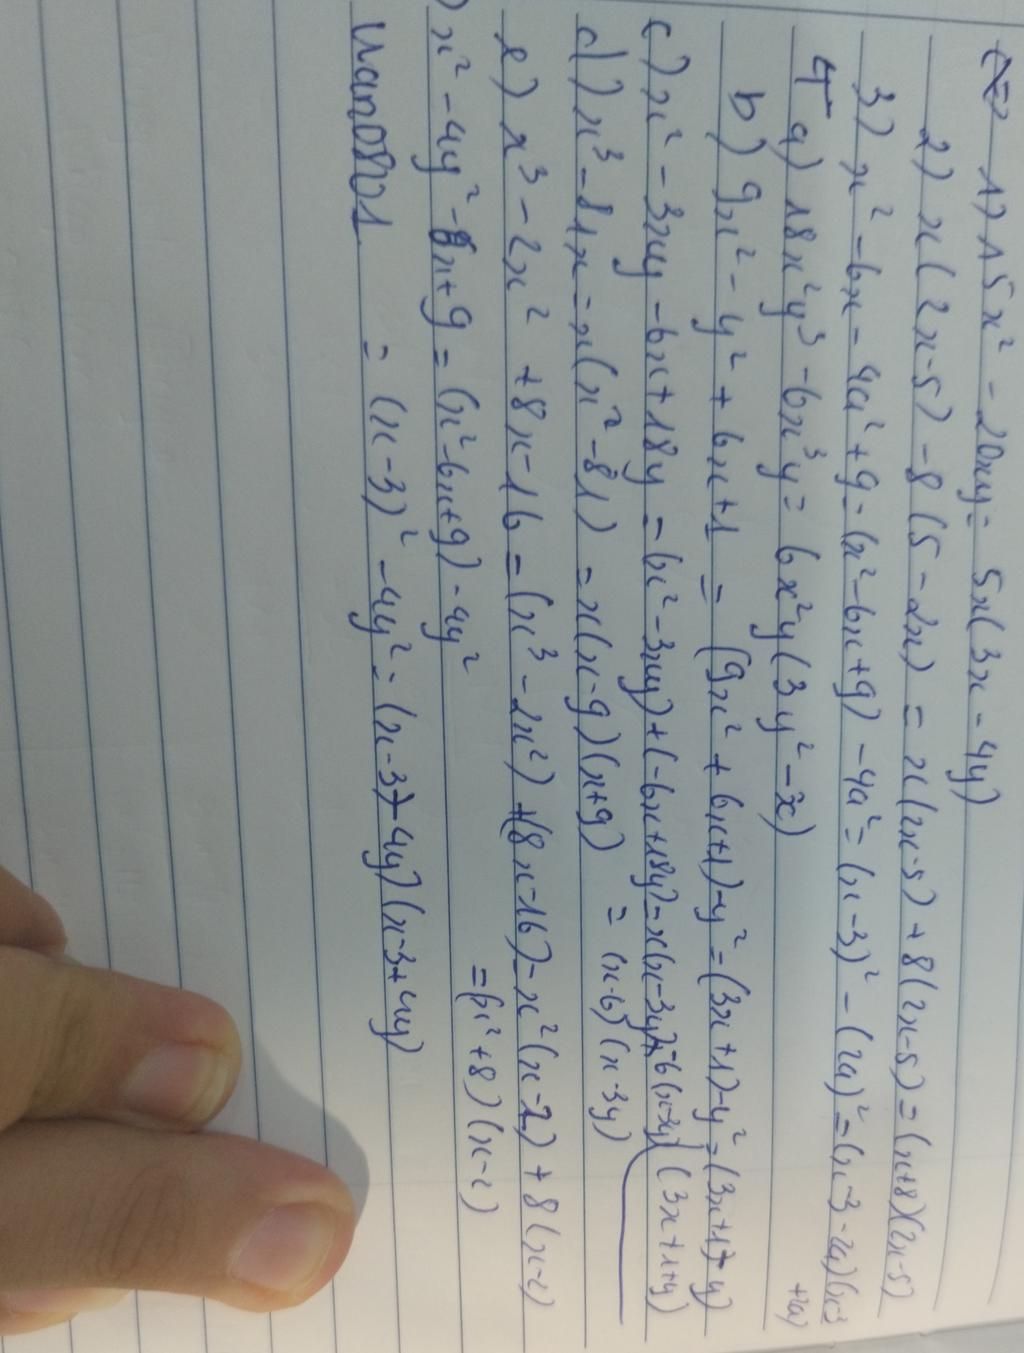 1) 15x² - 20xy = 5x(3x - 4y)
2) x(2x-5) - 8(5-2x) = x(2x-5) + 8(2x-5) = (x+8)(2x-5)
3) x² - 6x - 4a² + 9 = (x² - 6x + 9) - 4a² = (x-3)² - (2a)² = (x-3-2a)(x-3
+2a)
4 a) 18x²y³ - 6x³y = 6x²y(3y² - x)
b) 9x² - y² + 6x + 1 = (9x² + 6x + 1) - y² = (3x+1) - y² = (3x+1 - y)
(3x+1+y)
c) x² - 3xy - 6x + 18y = (x² - 3xy) + (-6x + 18y) = x(x-3y) - 6(x-3y)
= (x-6)(x-3y)
d) x³ - 81x = x(x² - 81) = x(x-9)(x+9)
e) x³ - 2x² + 8x - 16 = (x³ - 2x²) + (8x - 16) = x²(x-2) + 8(x-2)
= (x² + 8)(x-2)
) x² - 4y² - 6x + 9 = (x² - 6x + 9) - 4y²
wan0801 = (x-3)² - 4y² = (x-3 - 4y)(x-3 + 4y)